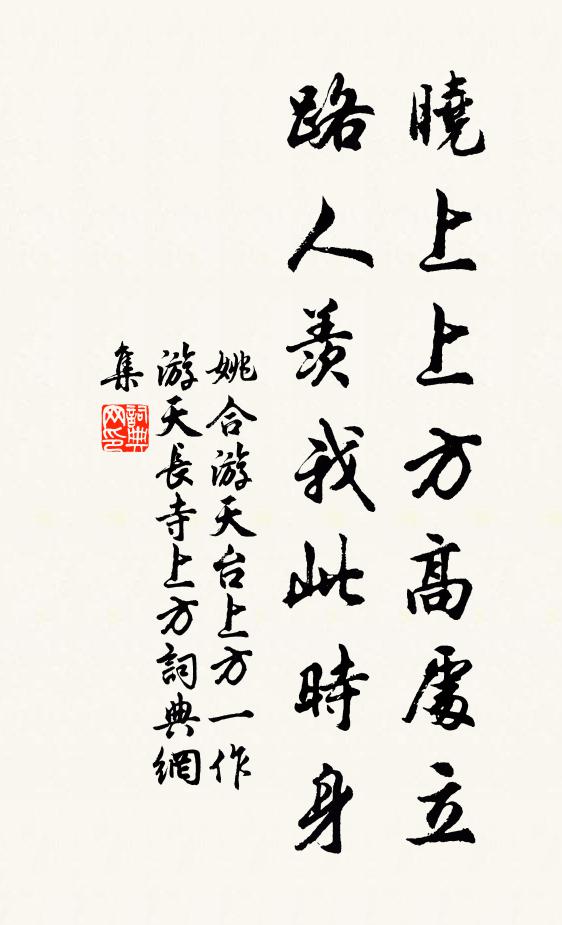 曉上上方高處立
路人羨我此時身
姚合游天台上方一作
游天長寺上方詞典網
集
詞典网印